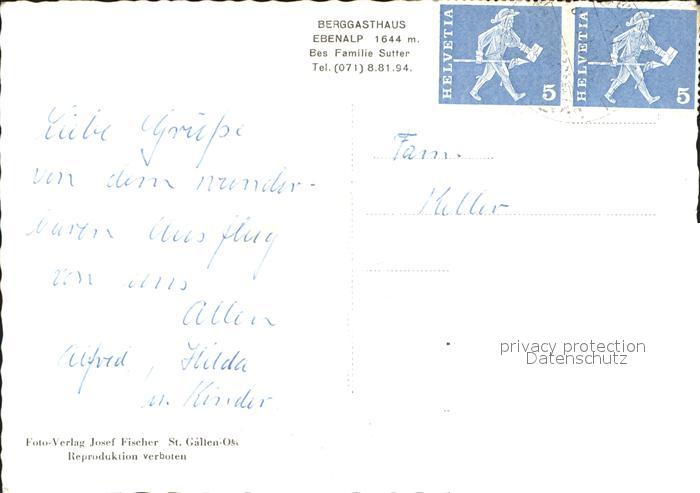 BERGGASTHAUS
EBENALP 1644 m.
Bes Familie Sutter
Tel. (071) 8.81.94.
HELVETIA 5
HELVETIA 5
Liebe Grüße
von dem wunder-
baren Ausflug
von uns
Allen
Alfred, Hilda
u. Kinder
Fam.
Keller
privacy protection
Datenschutz
Foto-Verlag Josef Fischer St. Gallen-Ost
Reproduktion verboten